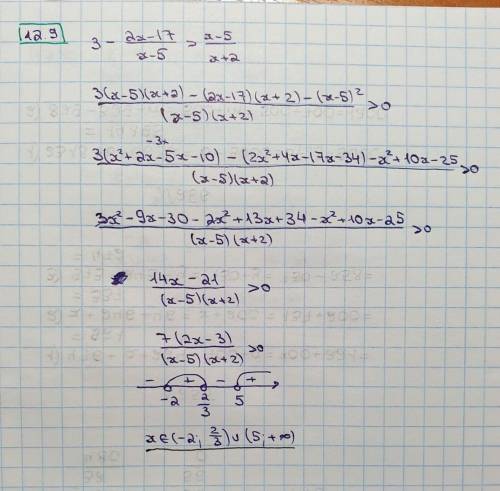 12.9
3 - (2x-17)/(x-5) > (x-5)/(x+2)
(3(x-5)(x+2) - (2x-17)(x+2) - (x-5)²)/((x-5)(x+2)) > 0
-3x
(3(x²+2x-5x-10) - (2x²+4x-17x-34) - x²+10x-25)/((x-5)(x+2)) > 0
(3x²-9x-30-2x²+13x+34-x²+10x-25)/((x-5)(x+2)) > 0
(14x-21)/((x-5)(x+2)) > 0
(7(2x-3))/((x-5)(x+2)) > 0
- + - +
-2 2/3 5
x∈(-2; 2/3)∪(5; +∞)